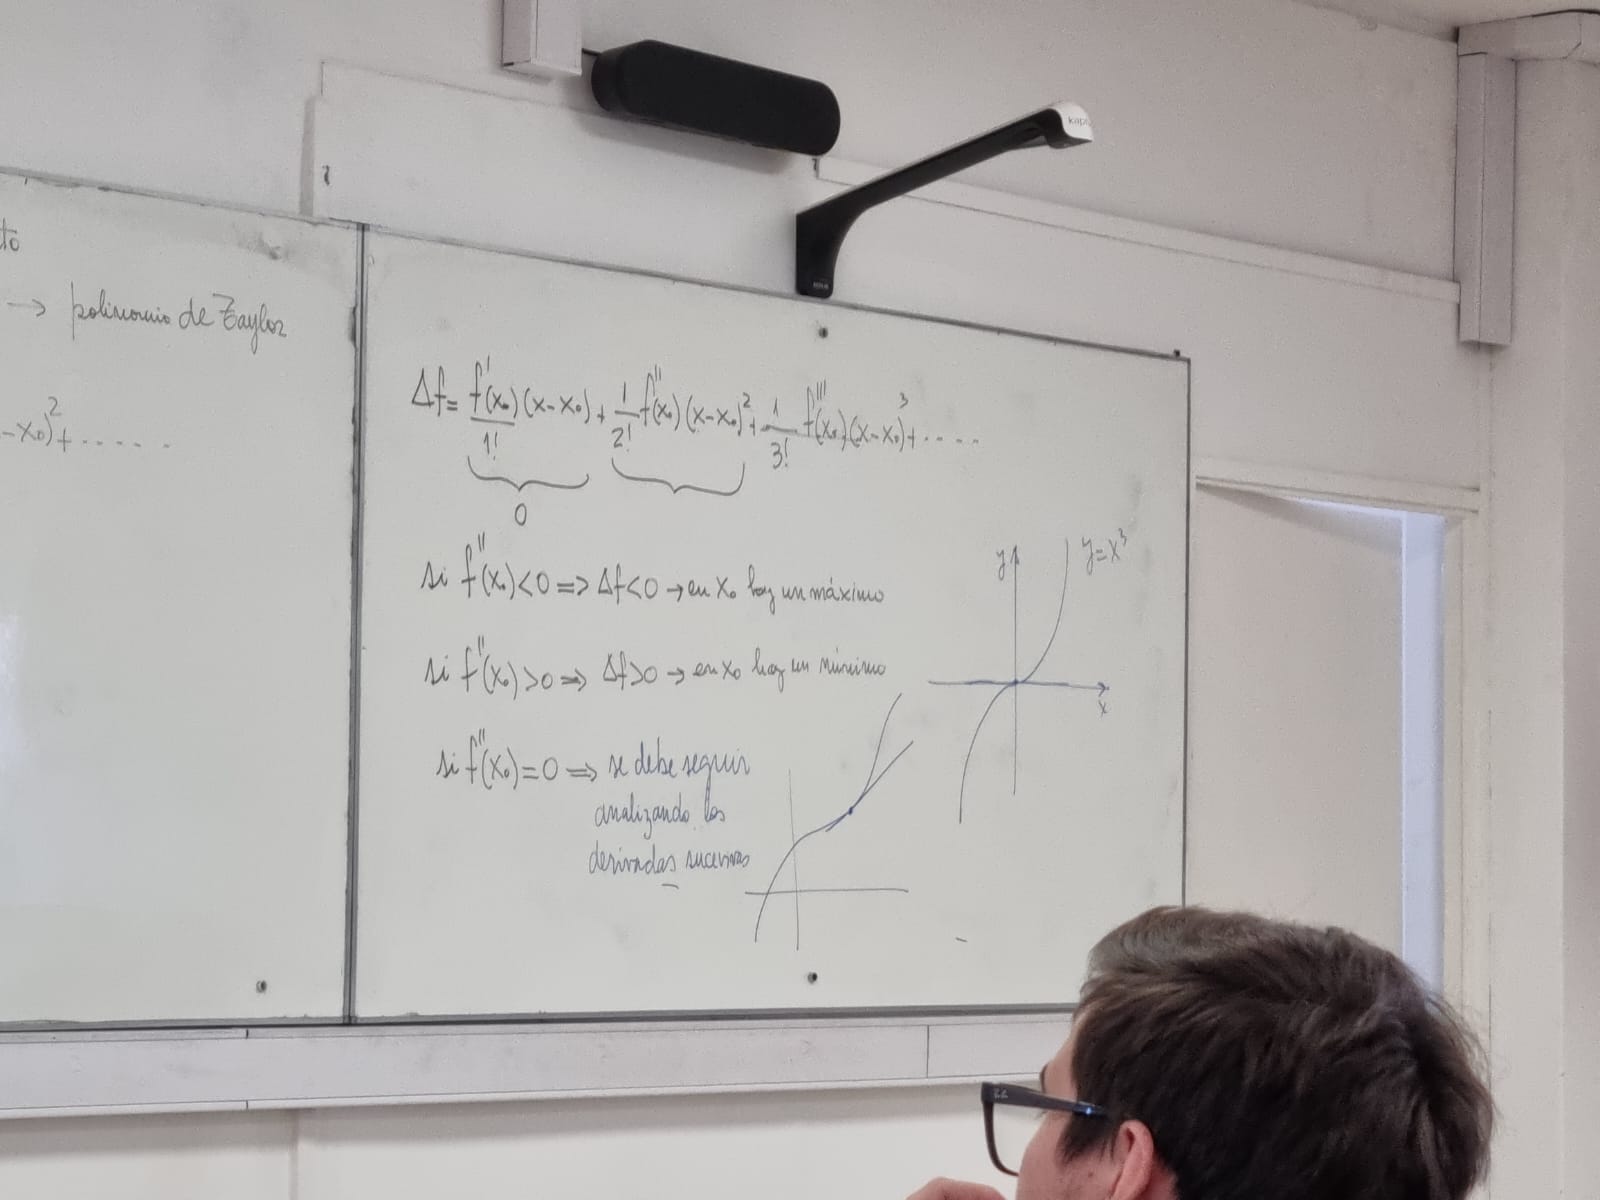 to
→ polinomio de Taylor
-x₀)² + .....
Δf = f'(x₀)/1! (x-x₀) + 1/2! f''(x₀)(x-x₀)² + 1/3! f'''(x₀)(x-x₀)³ + ....
0
si f''(x₀)<0 => Δf<0 → en x₀ hay un máximo
si f''(x₀)>0 => Δf>0 → en x₀ hay un mínimo
si f''(x₀)=0 => se debe seguir
analizando las
derivadas sucesivas
y
y=x³
x
kapt